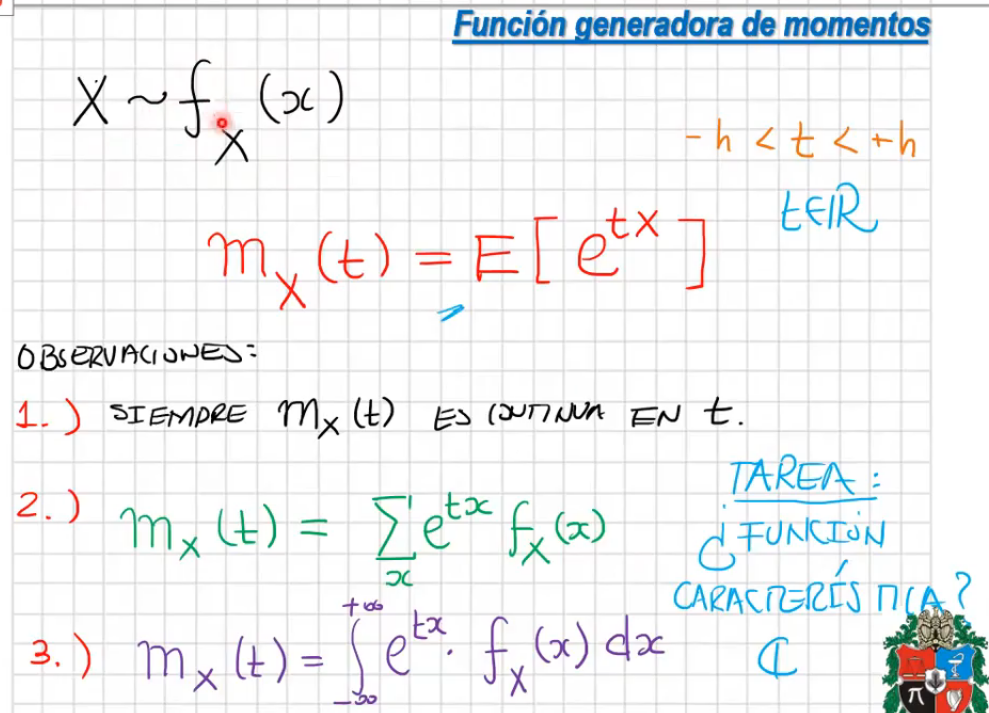 Función generadora de momentos
X ~ f_X (x)
-h < t < +h
t∈ℝ
m_X (t) = E[e^{tX}]
OBSERVACIONES:
1.) SIEMPRE m_X (t) ES CONTINUA EN t.
2.) m_X (t) = ∑_x e^{tx} f_X (x)
TAREA:
¿FUNCIÓN
CARACTERÍSTICA?
3.) m_X (t) = ∫_{-∞}^{+∞} e^{tx} · f_X (x) dx
ℂ
π